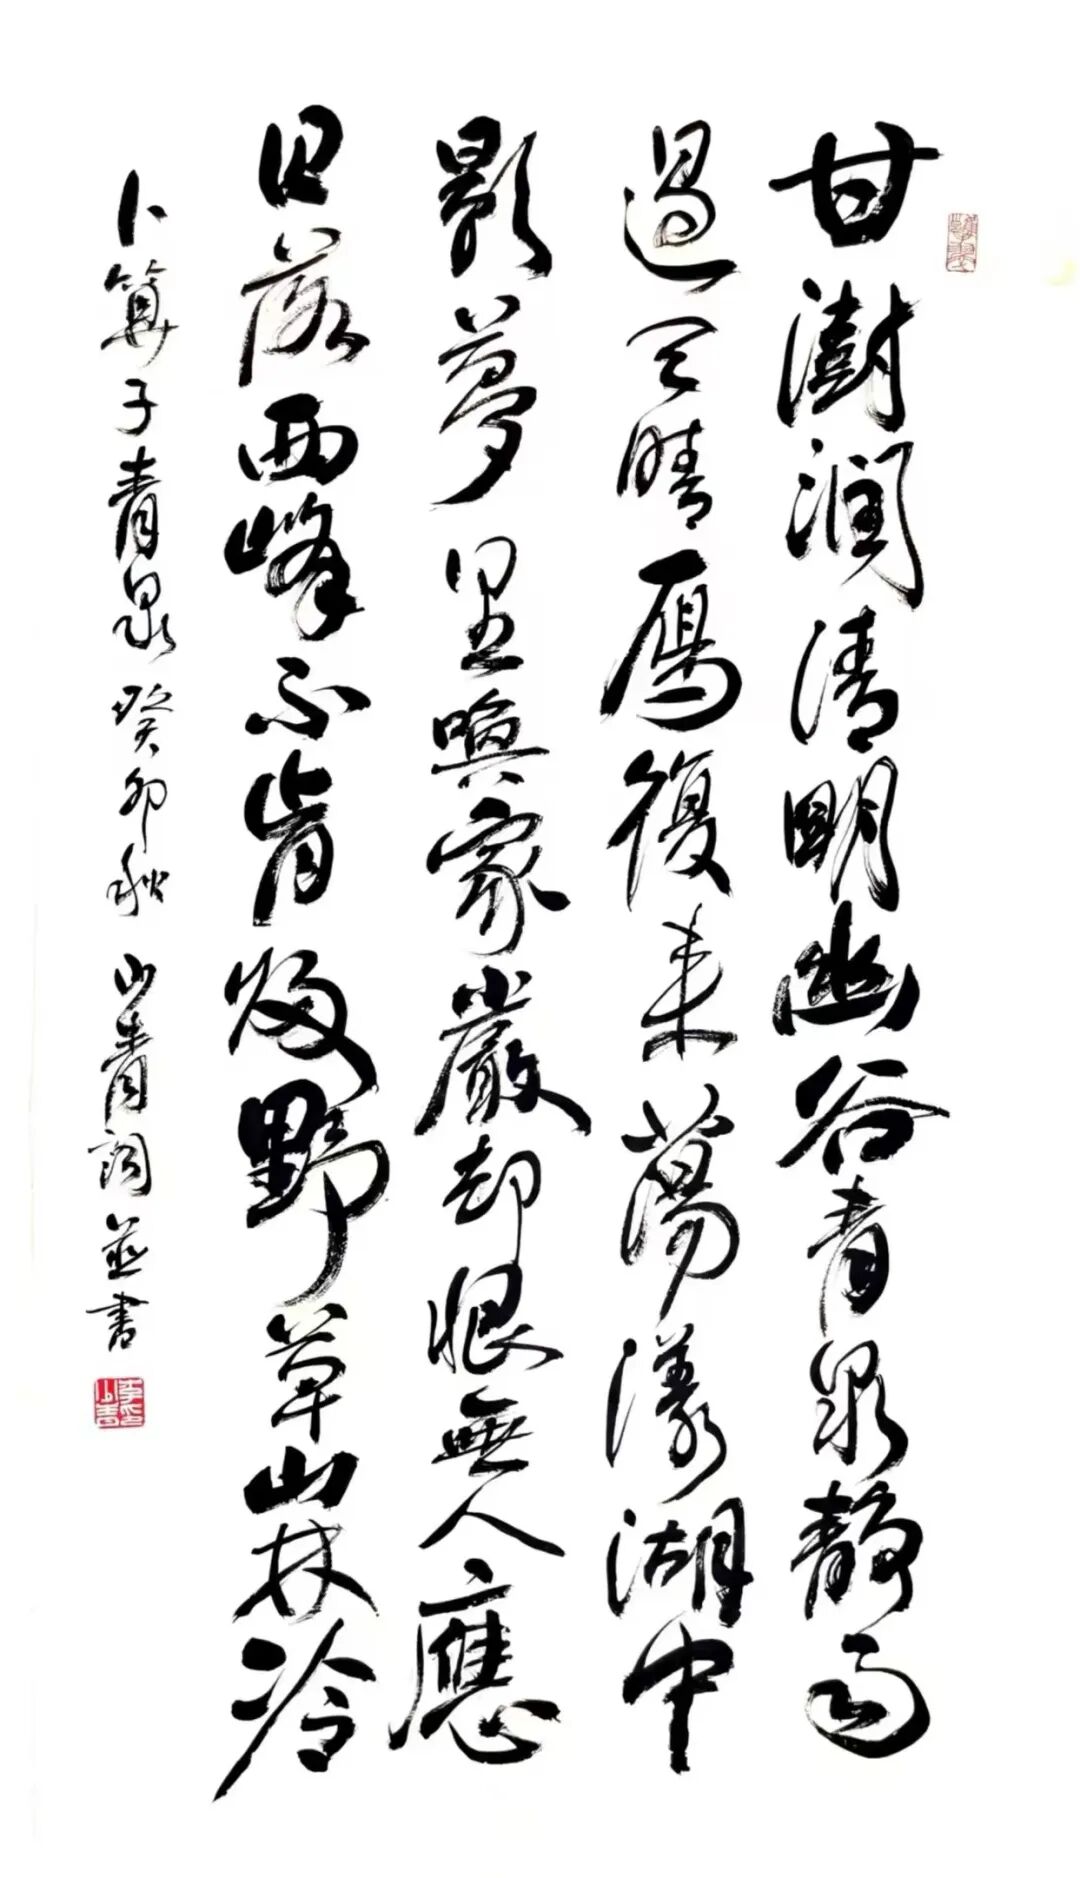 甘澍潤清明幽谷青泉靜雨
過天晴雁復來蕩漾湖中
影夢里喚家嚴却恨無人應
日落西峰不肯歸野草山林冷
卜算子青泉癸卯秋山青詞並書